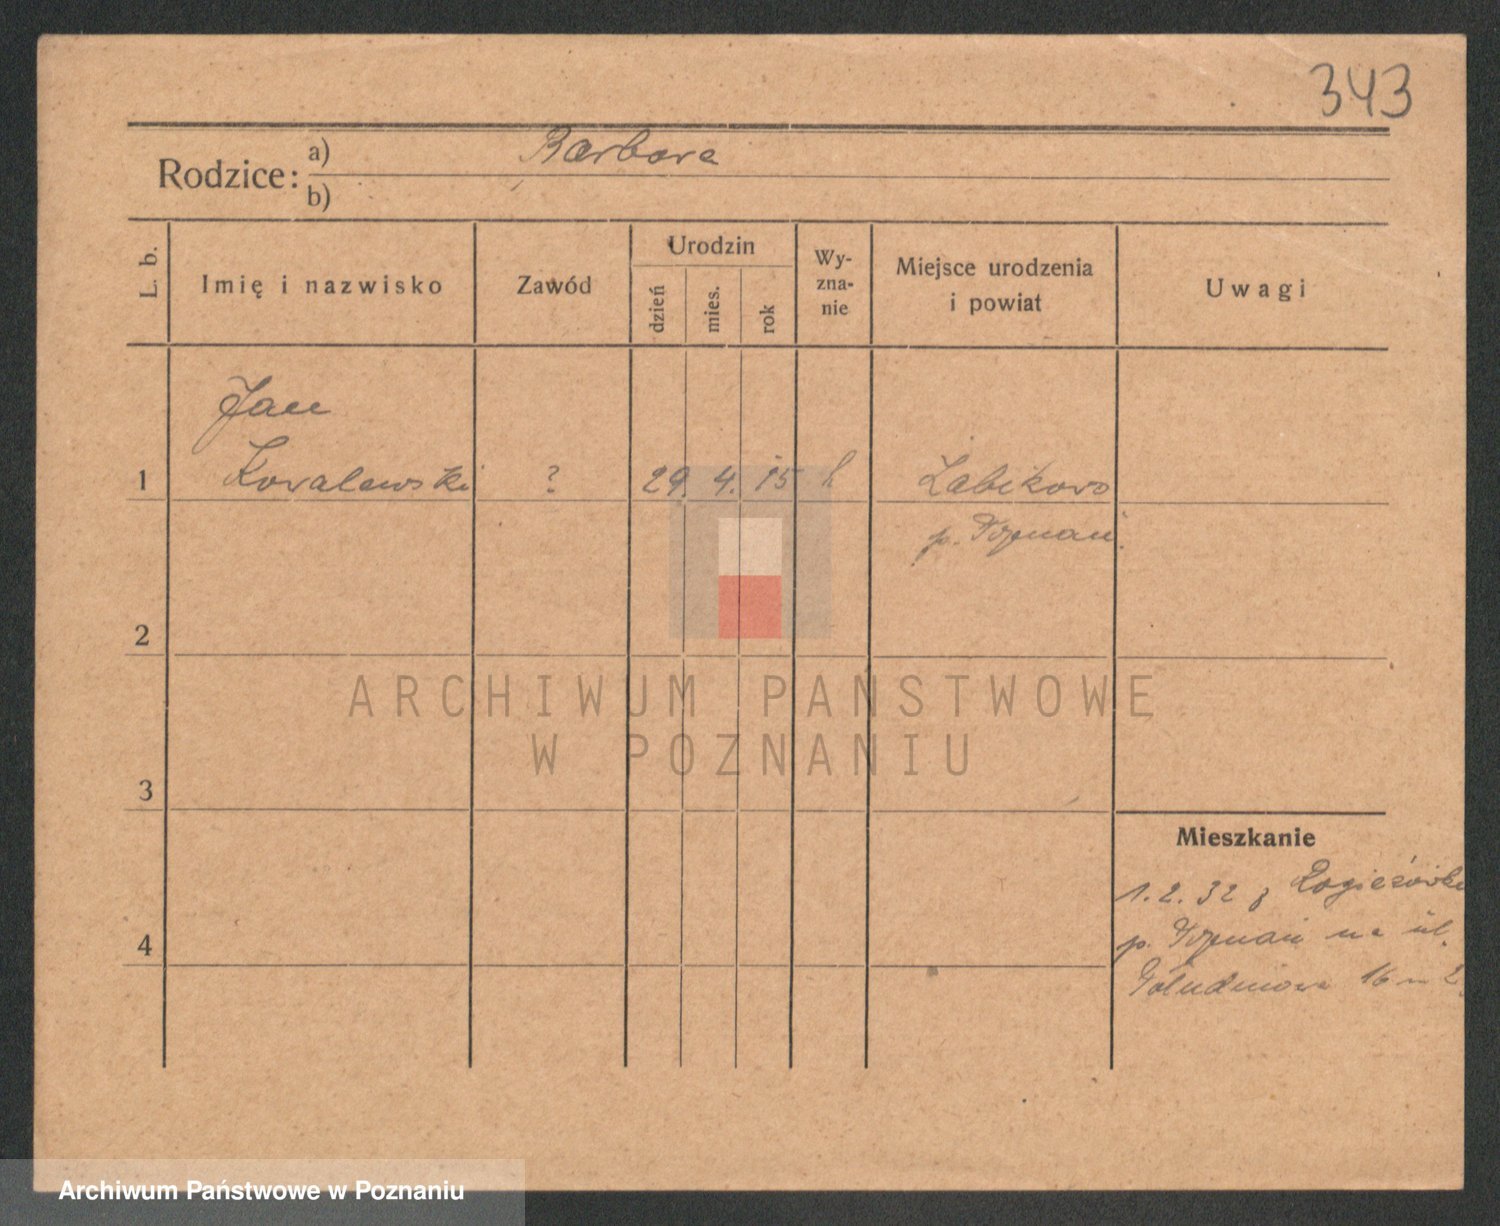 343
Rodzice: a) Barbara
b)
L. b.
Imię i nazwisko
Zawód
Urodzin
dzień
mies.
rok
Wy-
zna-
nie
Miejsce urodzenia
i powiat
Uwagi
Jan
1 Kowalewski ? 29. 4. 15 Żabikowo
p. Poznań.
2
ARCHIWUM PAŃSTWOWE
W POZNANIU
3
Mieszkanie
1.2.32 z
p. Poznań na ul.
4
Południowa 16 m 2.
Archiwum Państwowe w Poznaniu